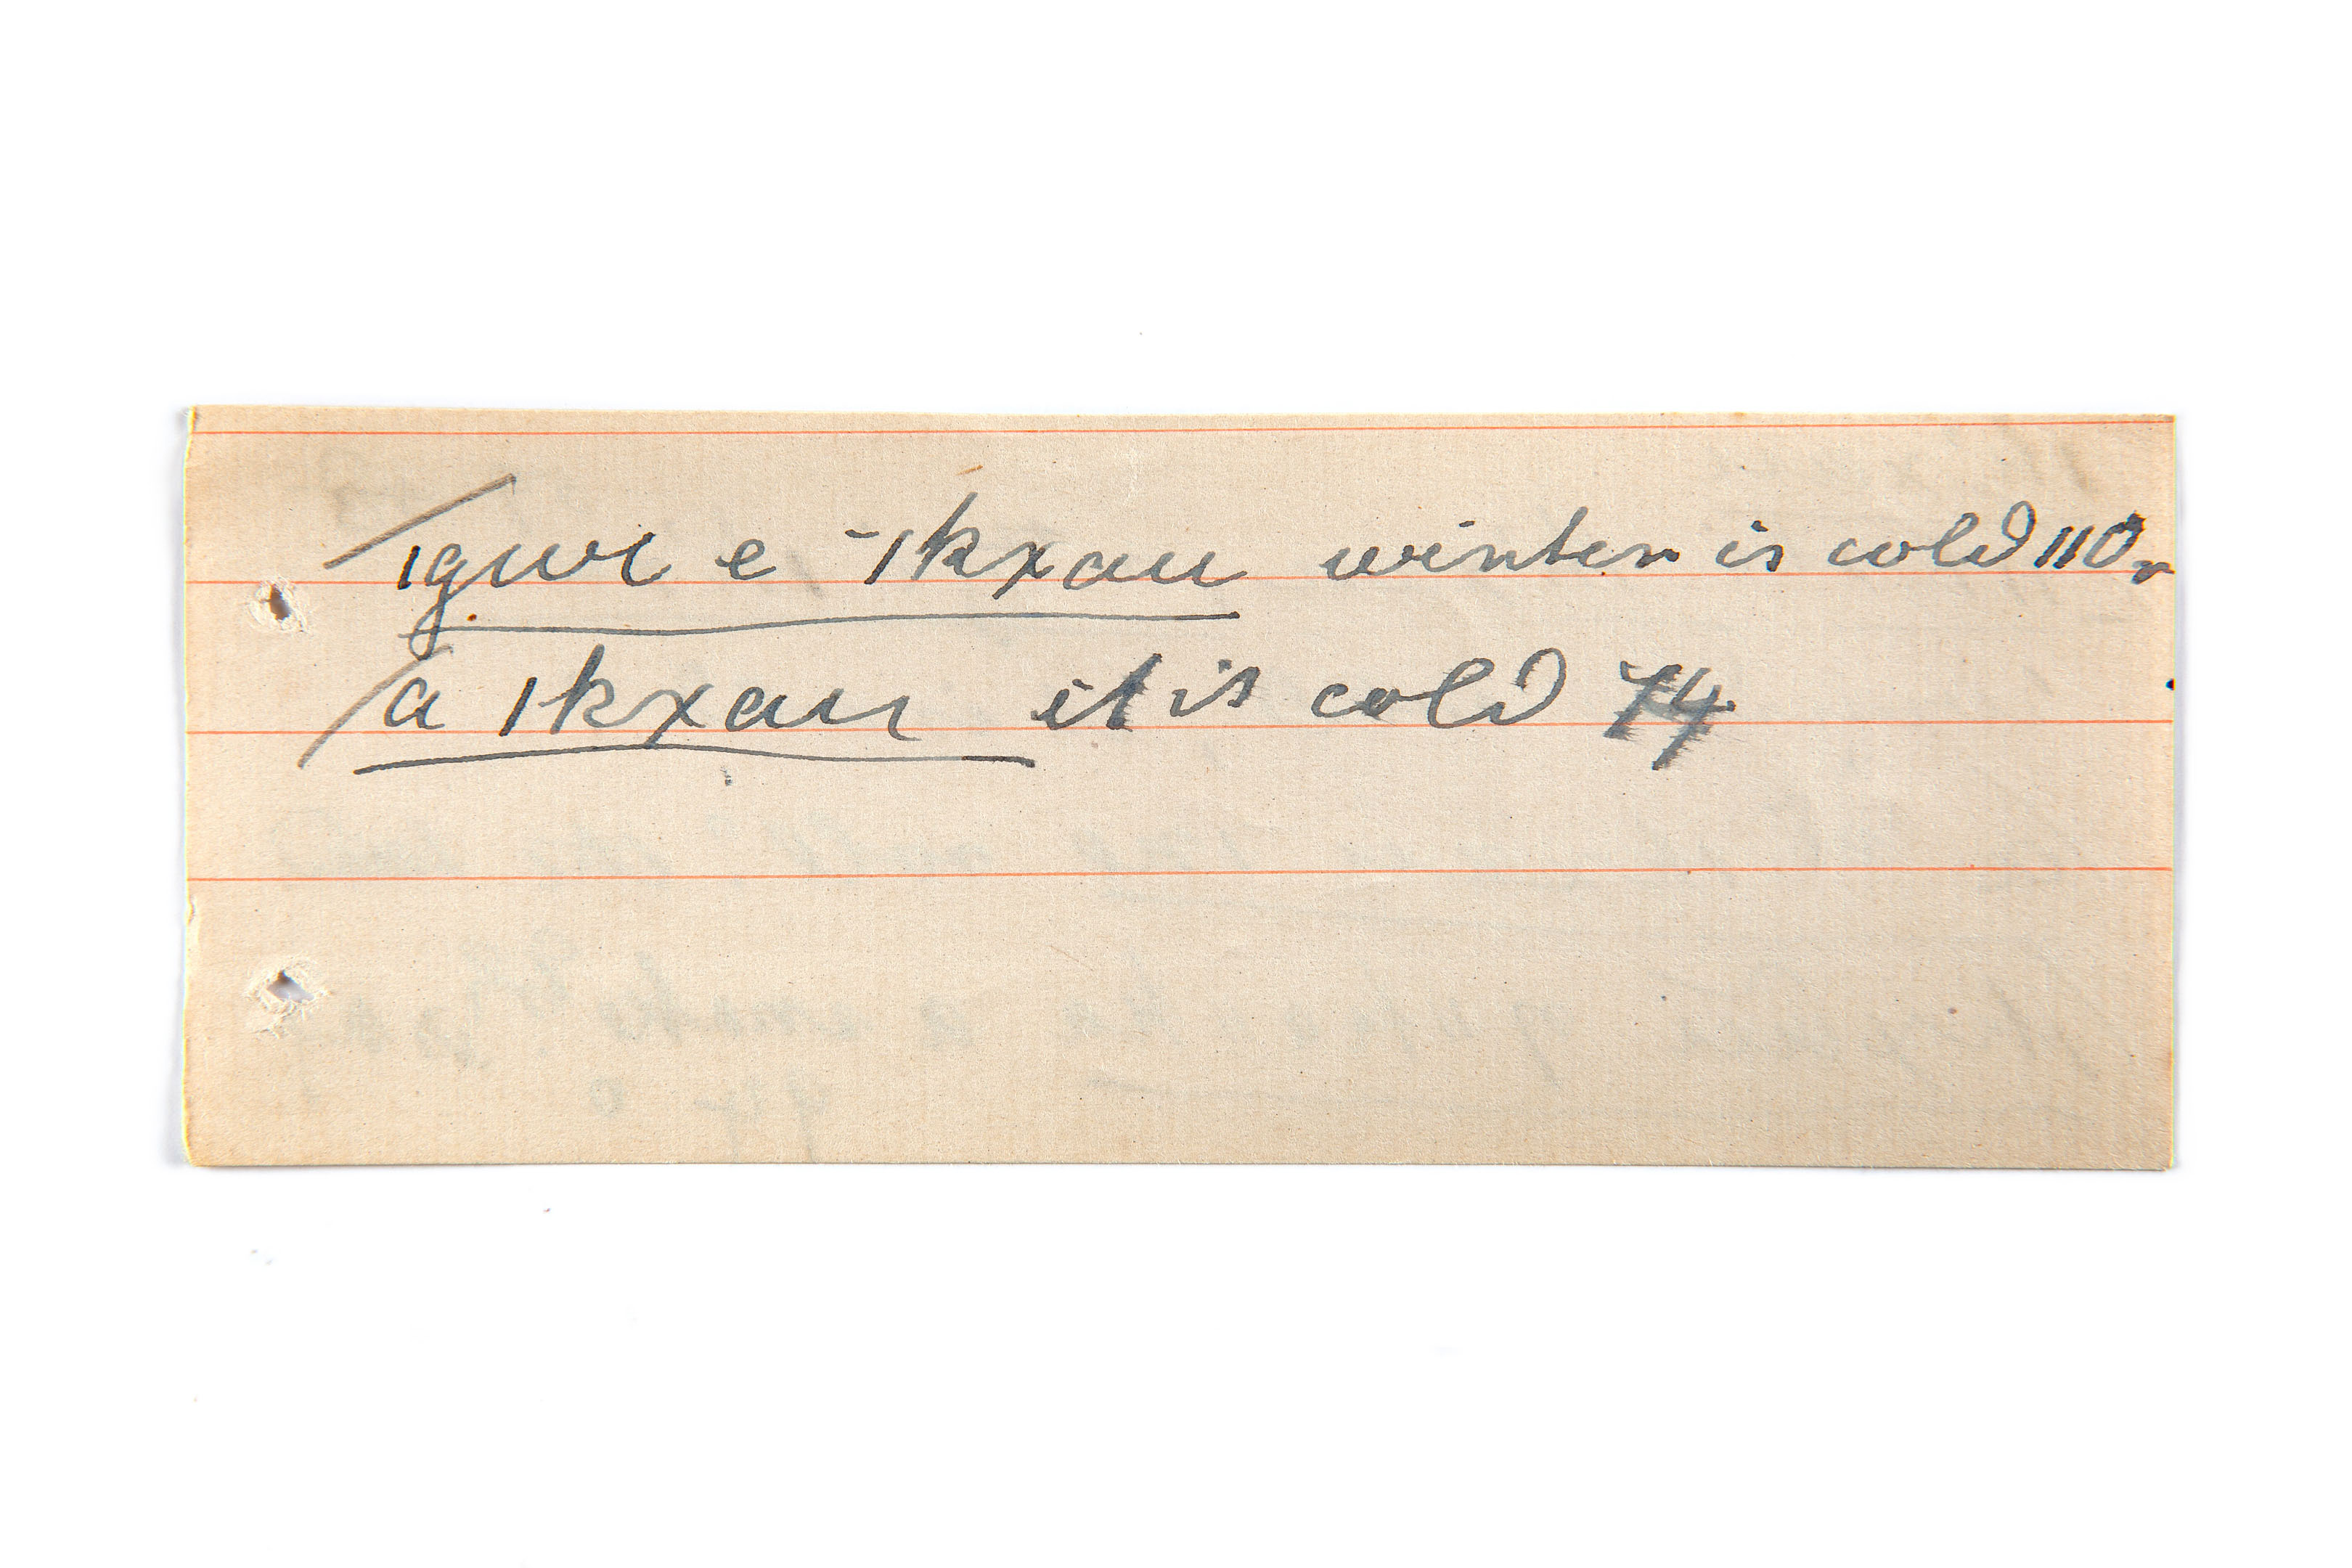 ǀgwe e ˉǀkxau winter is cold 110r
a ǀkxau it is cold 74